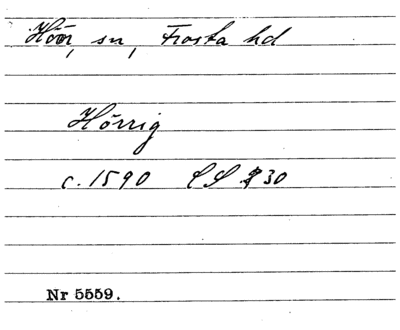 Höör, sn, Frosta hd
Hörrig
c. 1590 LS 30
Nr 5559.